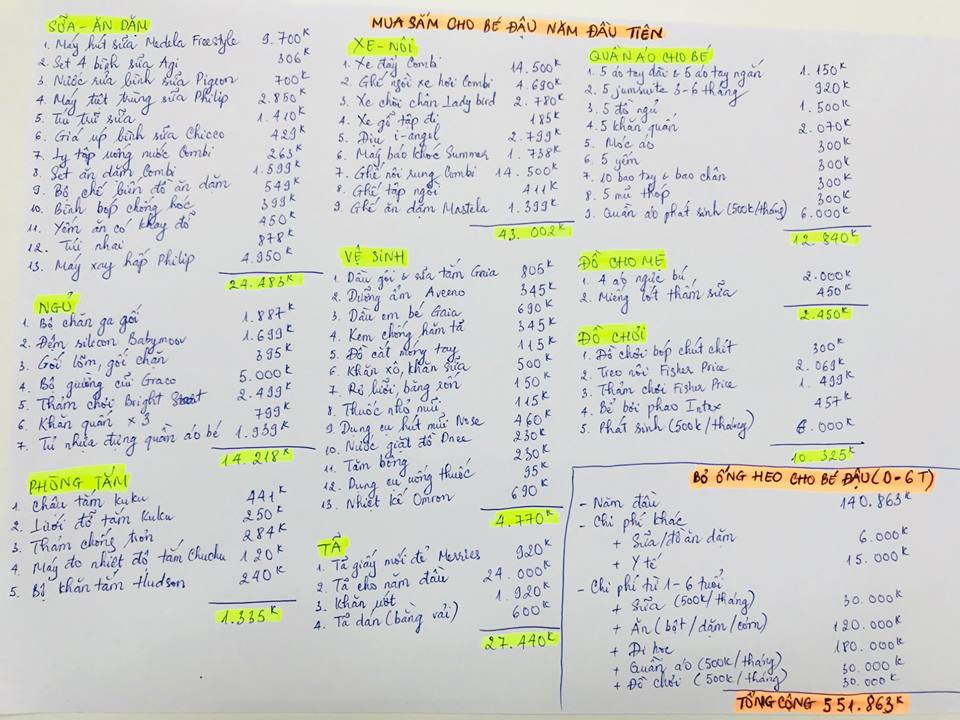 MUA SẮM CHO BÉ ĐẬU NĂM ĐẦU TIÊN
SỮA - ĂN DẶM
1. Máy hút sữa Medela Freestyle 9.700K
2. Set 4 bình sữa Agi 306K
3. Nước rửa bình sữa Pigeon 700K
4. Máy tiệt trùng sữa Philip 2.850K
5. Túi trữ sữa 1.410K
6. Giá úp bình sữa Chicco 429K
7. Ly tập uống nước Combi 263K
8. Set ăn dặm Combi 1.599
9. Bộ chế biến đồ ăn dặm 549K
10. Bình bóp chống hóc 399K
11. Yếm ăn có khay đổ 450K
12. Túi nhai 878K
13. Máy xay hấp Philip 4.950K
24.483K
NGỦ
1. Bộ chăn ga gối 1.887K
2. Đệm silicon Babymoov 1.699K
3. Gối lõm, gối chăn 395K
4. Bộ giường cũi Graco 5.000K
5. Thảm chơi Bright 2.499K
6. Khăn quấn x 3 799K
7. Tủ nhựa đựng quần áo bé 1.939K
14.218K
PHÒNG TẮM
1. Chậu tắm Kuku 441K
2. Lưới đỡ tắm Kuku 250K
3. Thảm chống trơn 284K
4. Máy đo nhiệt độ tắm Chuchu 120K
5. Bộ khăn tắm Hudson 240K
1.335K
XE - NÔI
1. Xe đẩy Combi 14.500K
2. Ghế ngồi xe hơi Combi 4.690K
3. Xe chòi chân Lady bird 2.780K
4. Xe gỗ tập đi 185K
5. Địu i-angel 2.799K
6. Máy báo khóc Summer 1.738K
7. Ghế nôi rung Combi 14.500K
8. Ghế tập ngồi 411K
9. Ghế ăn dặm Mastela 1.399K
43.002K
VỆ SINH
1. Dầu gội & sữa tắm Gaia 805K
2. Dưỡng ẩm Aveeno 345K
3. Dầu em bé Gaia 690K
4. Kem chống hăm tã 345K
5. Đồ cắt móng tay 115K
6. Khăn xô, khăn sữa 500K
7. Rơ lưỡi, băng rốn 150K
8. Thuốc nhỏ mũi 115K
9. Dụng cụ hút mũi Nose 460K
10. Nước giặt đồ Dnee 230K
11. Tăm bông 230K
12. Dụng cụ uống thuốc 95K
13. Nhiệt kế Omron 690K
4.770K
TÃ
1. Tã giấy mới đẻ Merries 920K
2. Tã cho năm đầu 24.000K
3. Khăn ướt 1.920K
4. Tã dán (bằng vải) 600K
27.440K
QUẦN ÁO CHO BÉ
1. 5 áo tay dài & 5 áo tay ngắn 1.150K
2. 5 jumsuite 3-6 tháng 920K
3. 5 đồ ngủ 1.500K
4. 5 khăn quấn 2.070K
5. Móc áo 300K
6. 5 yếm 300K
7. 10 bao tay & bao chân 300K
8. 5 mũ thóp 300K
9. Quần áo phát sinh (500K/tháng) 6.000K
12.840K
ĐỒ CHO MẸ
1. 4 áo ngực bú 2.000K
2. Miếng lót thấm sữa 450K
2.450K
ĐỒ CHƠI
1. Đồ chơi bóp chút chít 300K
2. Treo nôi Fisher Price 2.069K
3. Thảm chơi Fisher Price 1.499
4. Bể bơi phao Intex 457K
5. Phát sinh (500K/tháng) 6.000K
10.325K
BỎ ỐNG HEO CHO BÉ ĐẬU (0-6T)
- Năm đầu 140.863K
- Chi phí khác
+ Sữa/đồ ăn dặm 6.000K
+ Y tế 15.000K
- Chi phí từ 1-6 tuổi
+ Sữa (500K/tháng) 30.000K
+ Ăn (bột/dặm/cơm) 120.000K
+ Đi học 180.000K
+ Quần áo (500K/tháng) 30.000K
+ Đồ chơi (500K/tháng) 30.000K
TỔNG CỘNG 551.863K